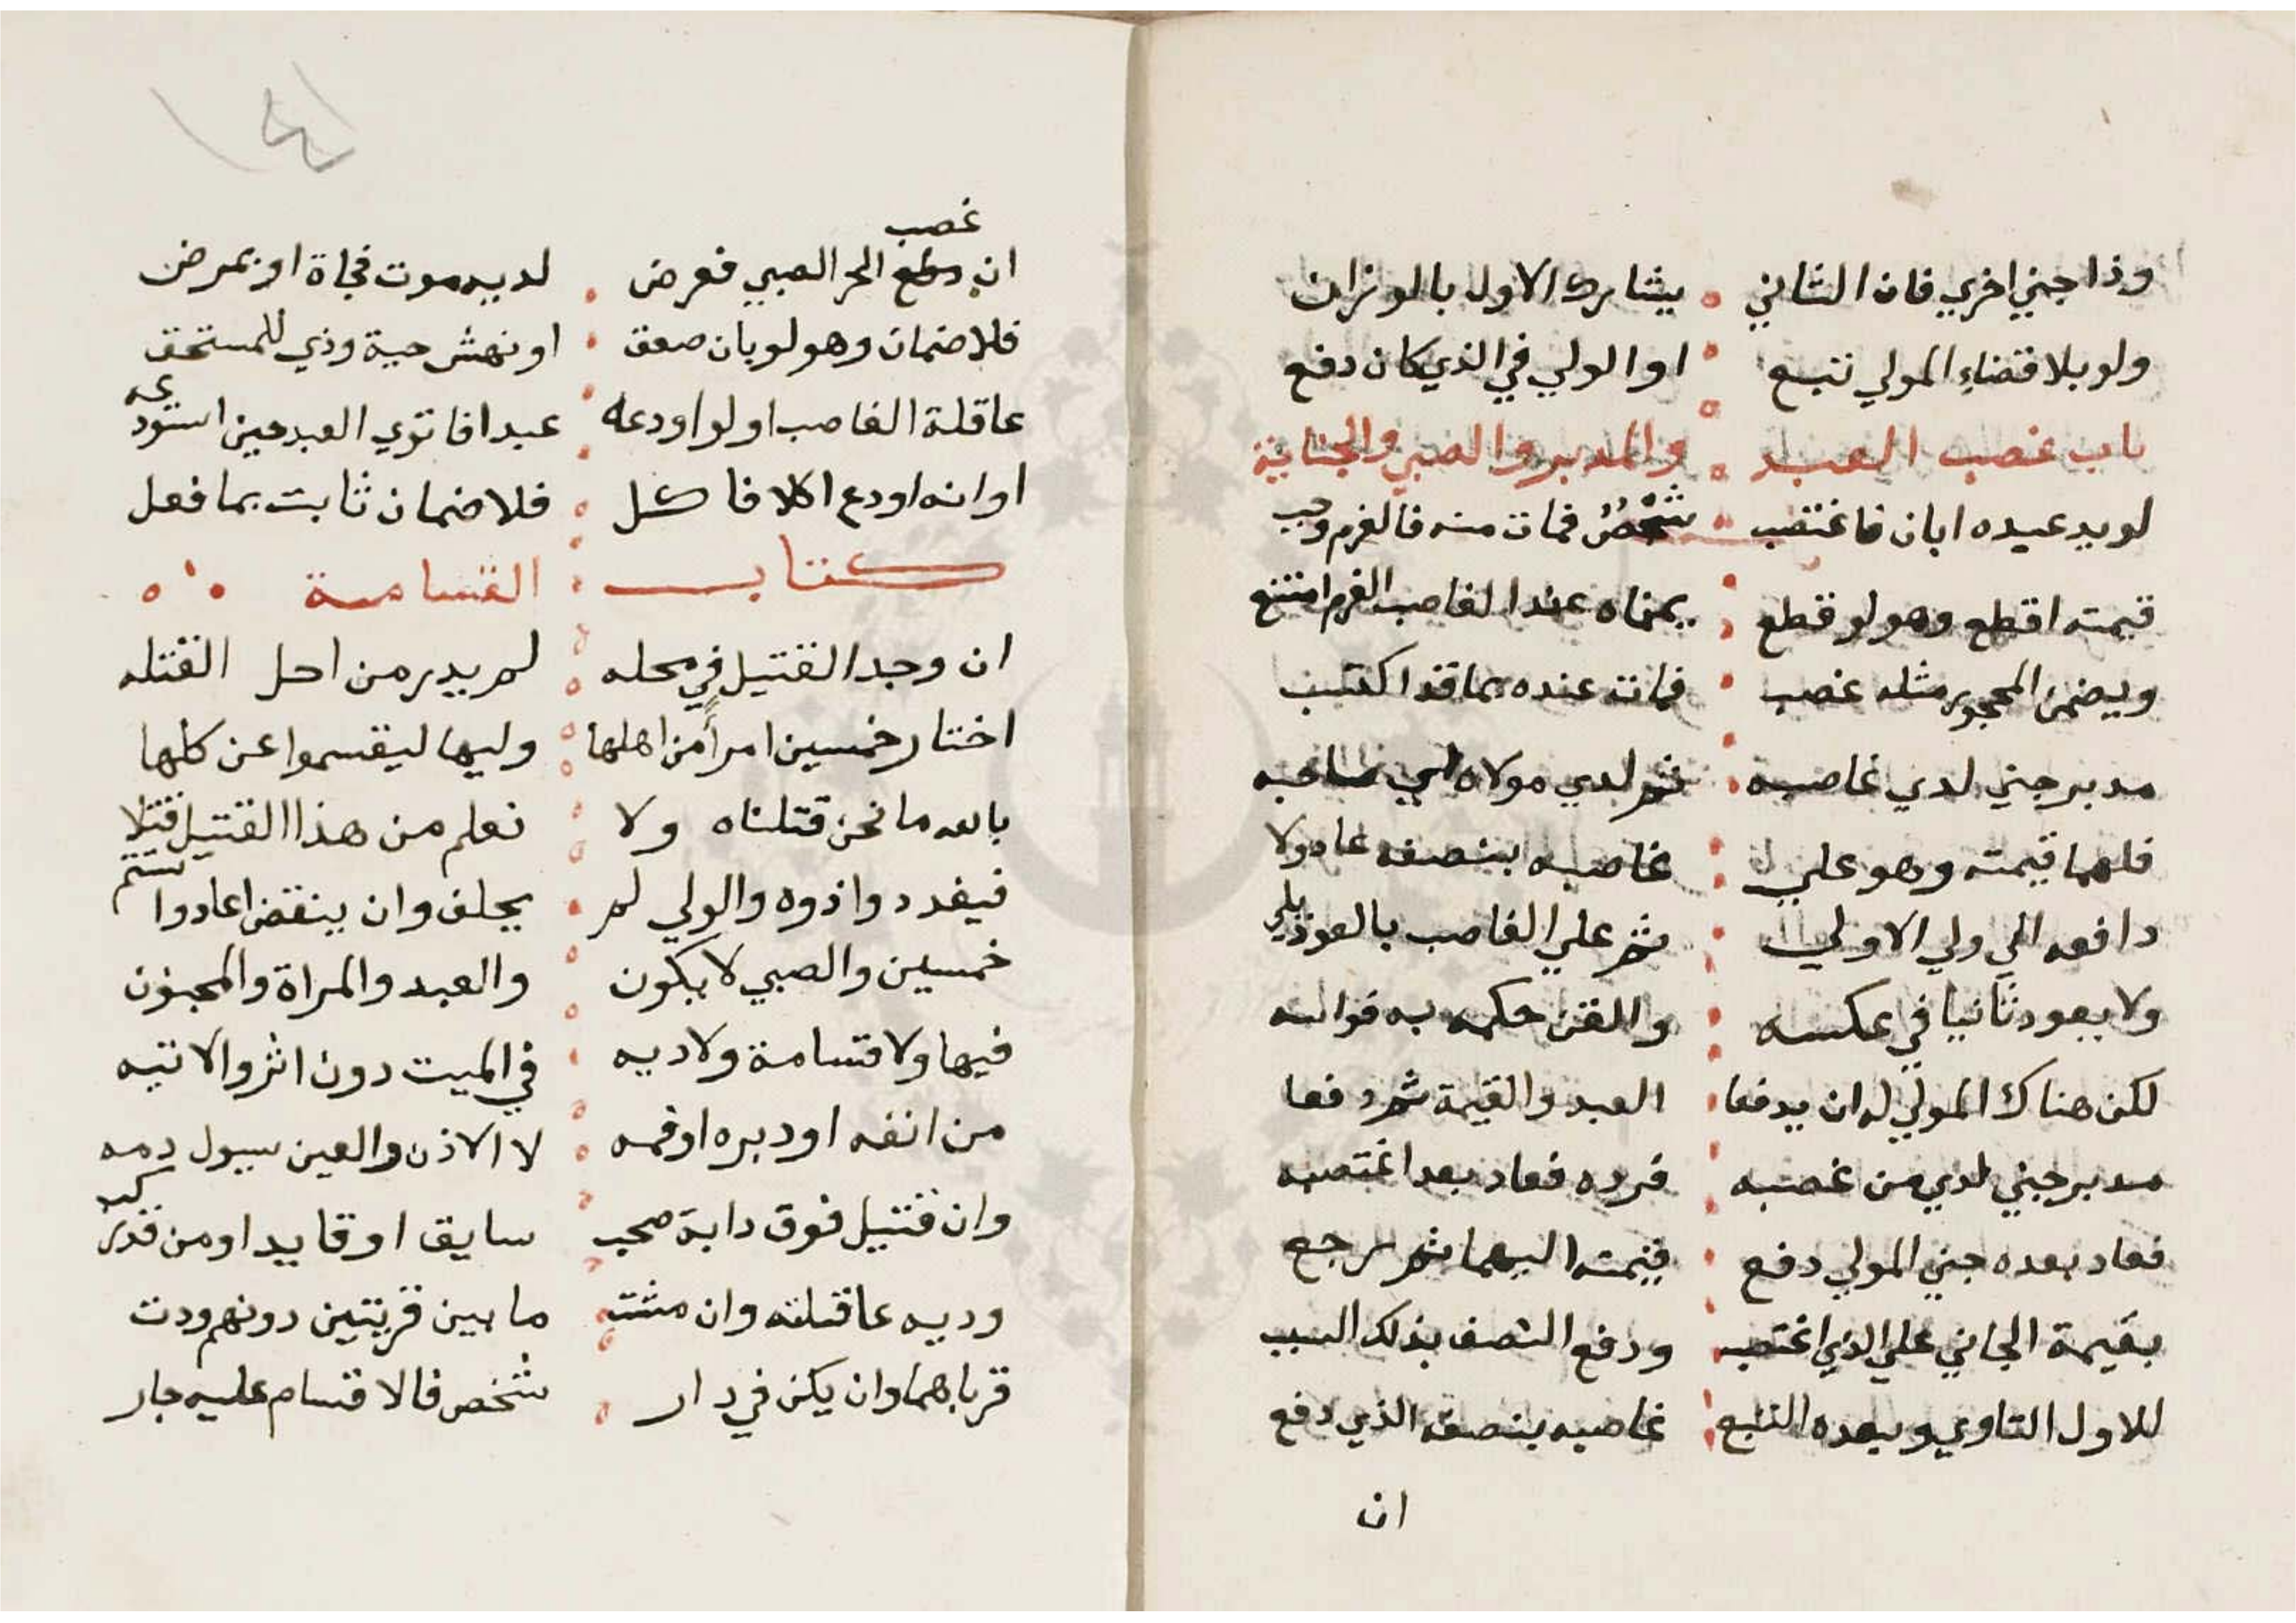 وذا جني اخري فان الثاني يشارك الاول بالوزان
ولو بلا قضاء المولي نتبع او الولي في الذي كان دفع
باب غصب العبد والمدبر والصبي والجناية
لو يد عبده ابان فاغتصب شخص فمات منه فالغرم وجب
قيمته اقطع وهو لو قطع يمناه عند الغاصب الغرم امتنع
ويضمن المحجور مثله غصب فمات عنده بما قد اكتسب
مدبر جني لدي غاصبه ثم لدي مولاه
فلهما قيمته وهو علي غاصبه بنصفه عاد ولا
دافعه الي ولي الاولي ثم علي الغاصب بالعود يلي
ولا يعود ثانيا في عكسه والقن حكمه به
لكن هناك المولي له ان يدفعا العبد والقيمة ثم دفعا
مدبر جني لدي من غصبه فرده فعاد بعد اغتصبه
فعاد بعده جني المولي دفع قيمته اليهما ثم رجع
بقيمة الجاني علي الذي اغتصب ودفع النصف بذلك السبب
للاول الثاوي وبعده اتبع غاصبه بنصفه الذي دفع
ان
١٤١
غصب
ان الحر الصبي فعرض لديه موت فجاة او بمرض
فلا ضمان وهو لو بان صعق او نهش حية وذي للمستحق
عاقلة الغاصب او لو اودعه عبدا فاتوي العبد حين استودعه
او انه اودع اكلا فاكل فلا ضمان ثابت بما فعل
كتاب القسامة
ان وجد القتيل في محله لم يدر من احل القتله
اختار خمسين امرأ من اهلها وليها ليقسموا عن كلها
بالله ما نحن قتلناه ولا نعلم من هذا القتيل قتلا
فيفد دوا ذوه والولي لم يحلف وان ينقض اعادوا ستتم
خمسين والصبي لا يكون والعبد والمراة والمجنون
فيها ولا قسامة ولا ديه في الميت دون اثر والاتيه
من انفه او دبره او فمه لا الاذن والعين سيول دمه
وان قتيل فوق دابة صحب سايق او قايد او من قد ركب
وديه عاقلته وان مشت ما بين قريتين دونهم ودت
قرباهما وان يكن في دار شخص فالاقسام عليه جار